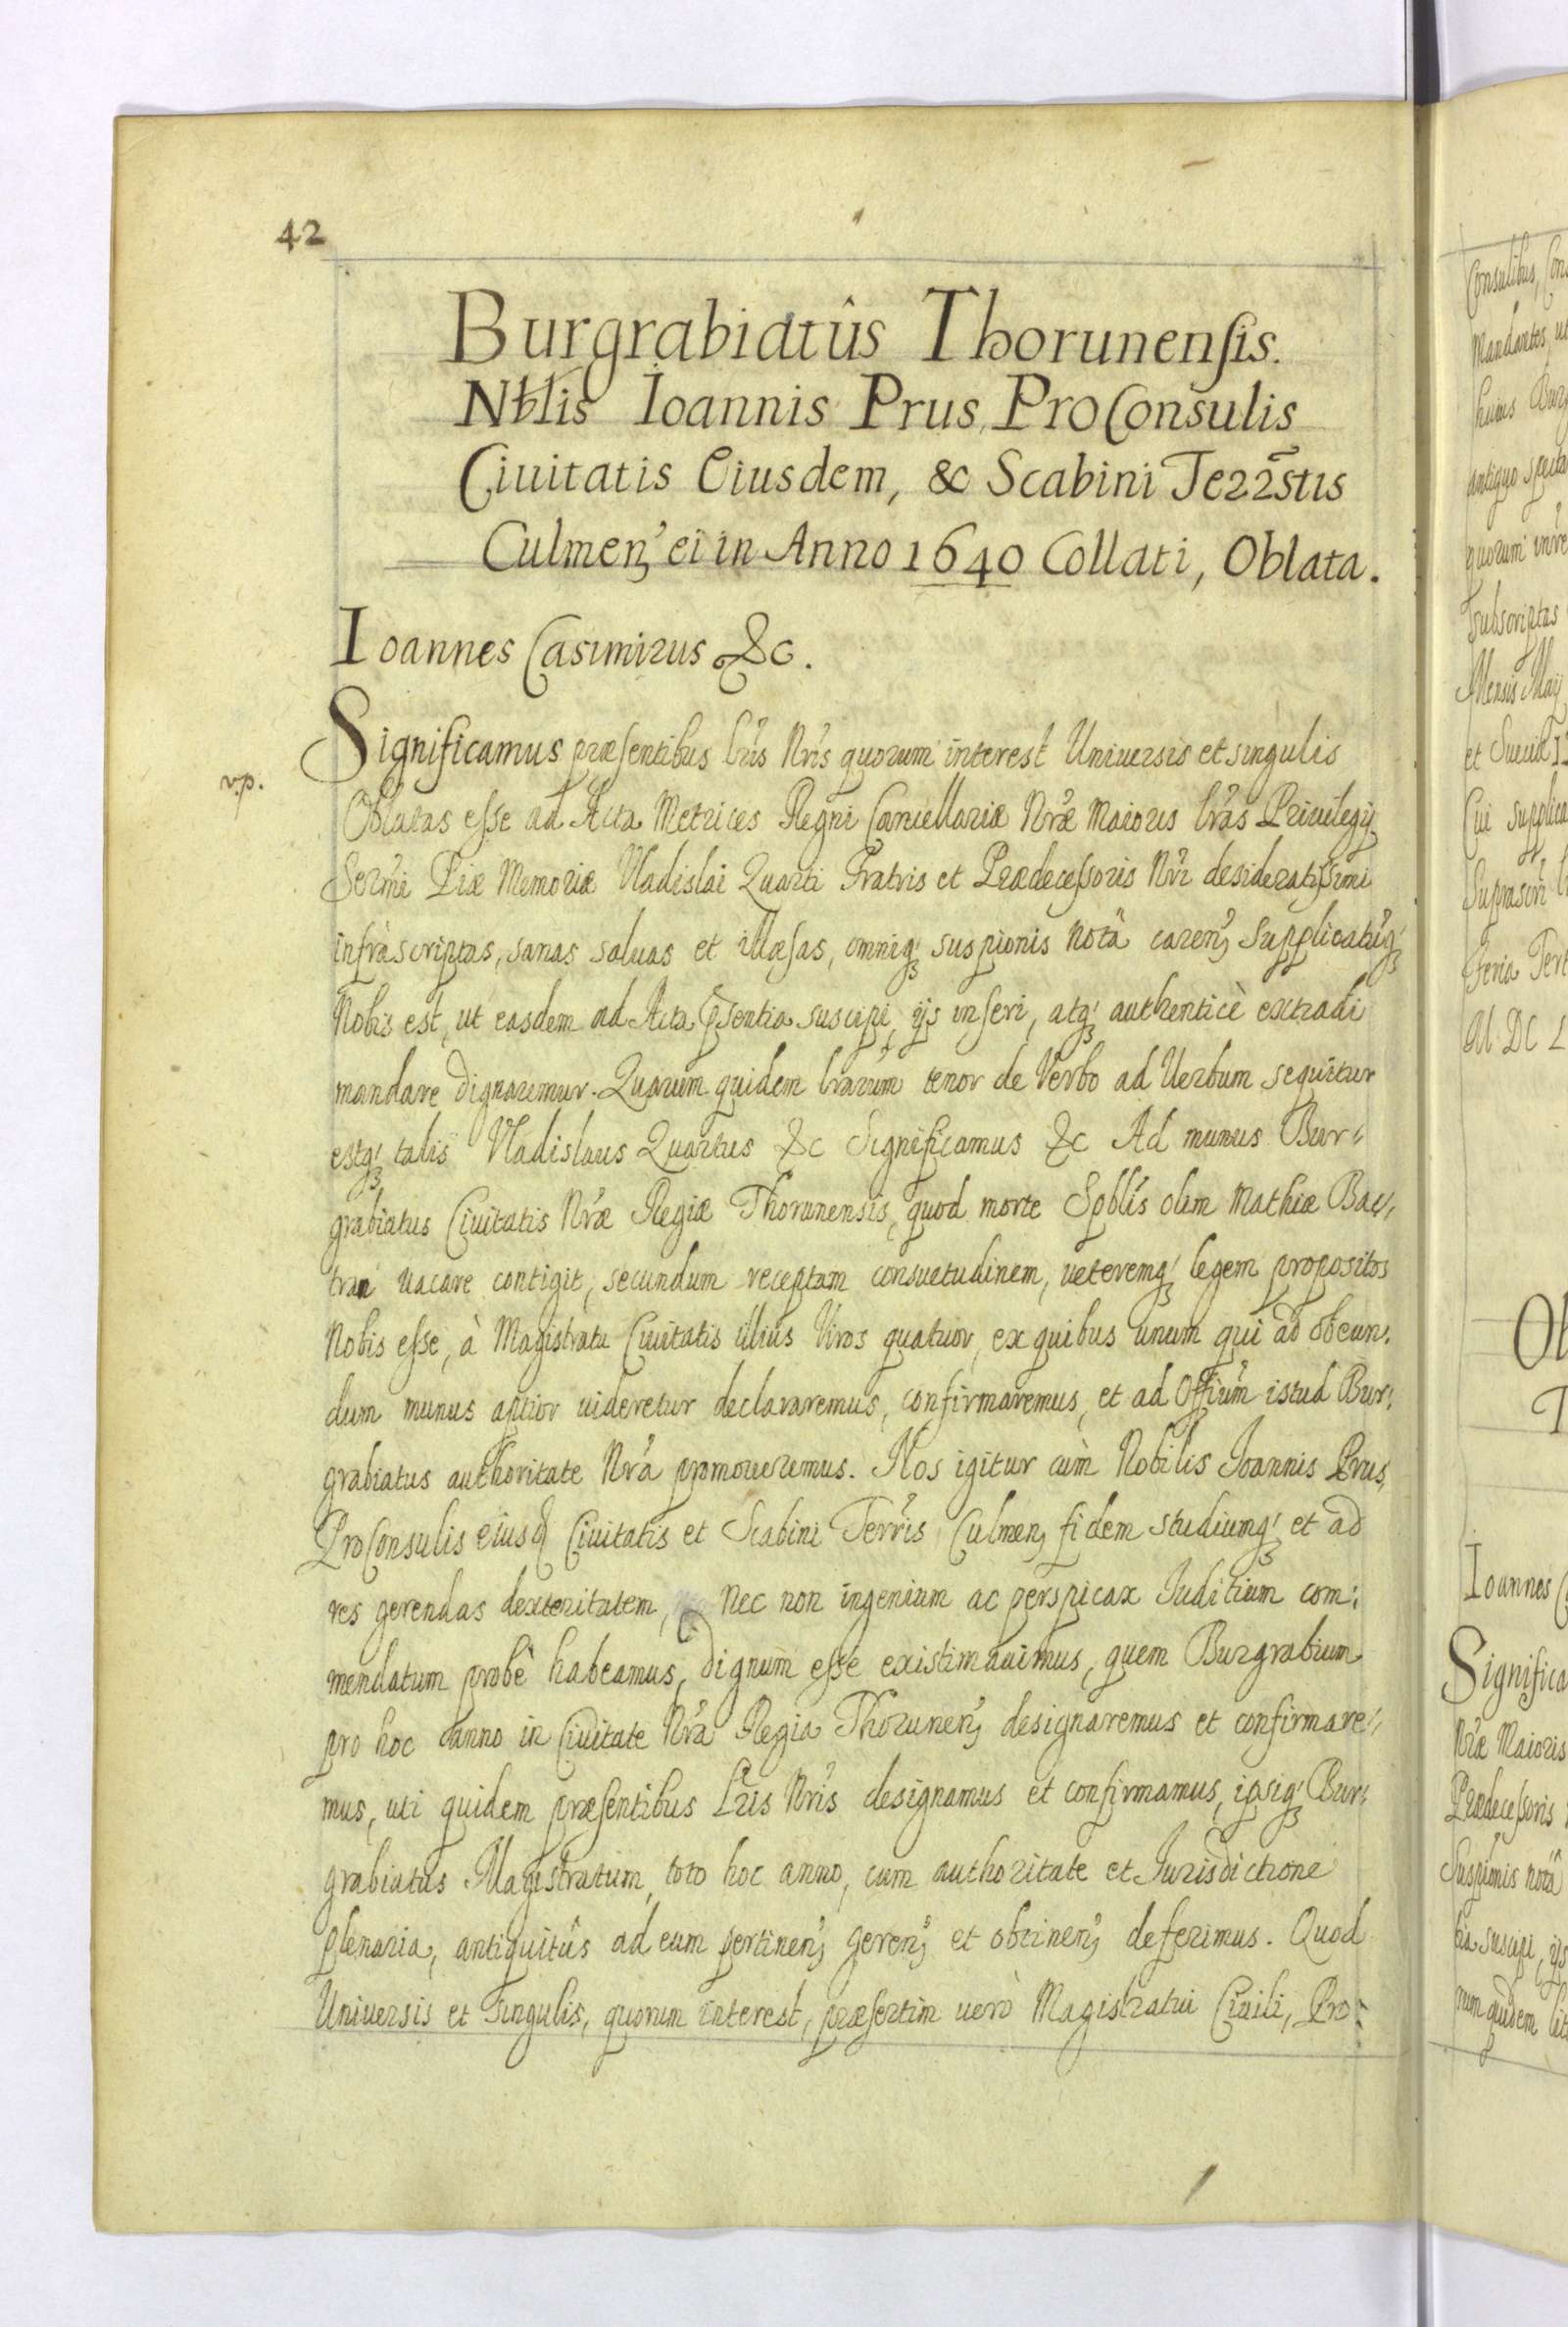 42
Burgrabiatûs Thorunensis.
Nblis Ioannis Prus, ProConsulis
Ciuitatis Eiusdem, & Scabini Terrstis
Culmen̄ ei in Anno 1640 Collati, Oblata.
Ioannes Casimirus &c.
Significamus præsentibus lris Nris quorum interest Uniuersis et singulis
v.p.
Oblatas esse ad Acta Metrices Regni Cancellariæ Nræ Maioris lras Priuilegij
Sermi Piæ Memoriæ Vladislai Quarti Fratris et Prædecessoris Nri desideratissimi
infràscriptas, sanas saluas et illæsas, omniq; suspionis notâ caren; Supplicatūq;
Nobis est, ut easdem ad Acta pñsentia suscipi, ijs inseri, atq; authenticè extradi
mandare dignaremur. Quarum quidem lrarum tenor de Verbo ad Uerbum sequitur
estq; talis Vladislaus Quartus &c Significamus &c Ad munus Bur-
grabiatus Ciuitatis Nræ Regiæ Thorunensis, quod morte Spblis olim Mathiæ Bac-
tran uacare contigit, secundum receptam consuetudinem, ueteremq; legem propositos
Nobis esse, à Magistratu Ciuitatis illius Viros quatuor, ex quibus unum qui ad obeun-
dum munus aptior uideretur declararemus, confirmaremus, et ad Offium istud Bur-
grabiatus authoritate Nrâ promoueremus. Nos igitur cùm Nobilis Ioannis Prus,
ProConsulis eiusd Ciuitatis et Scabini Terris Culmen; fidem studiumq; et ad
res gerendas dexteritatem, nec non ingenium ac perspicax Iuditium com-
mendatum probè habeamus, dignum esse existimauimus, quem Burgrabium
pro hoc anno in Ciuitate Nra Regia Thorunen; designaremus et confirmare-
mus, uti quidem præsentibus Lris Nris designamus et confirmamus, ipsiq; Bur-
grabiatus Magistratum, toto hoc anno, cum authoritate et Iurisdictione
plenaria, antiquitûs ad eum pertinen; geren; et obtinen; deferimus. Quod
Uniuersis et singulis, quorum interest, præsertim uerò Magistratui Ciuili, Pro-